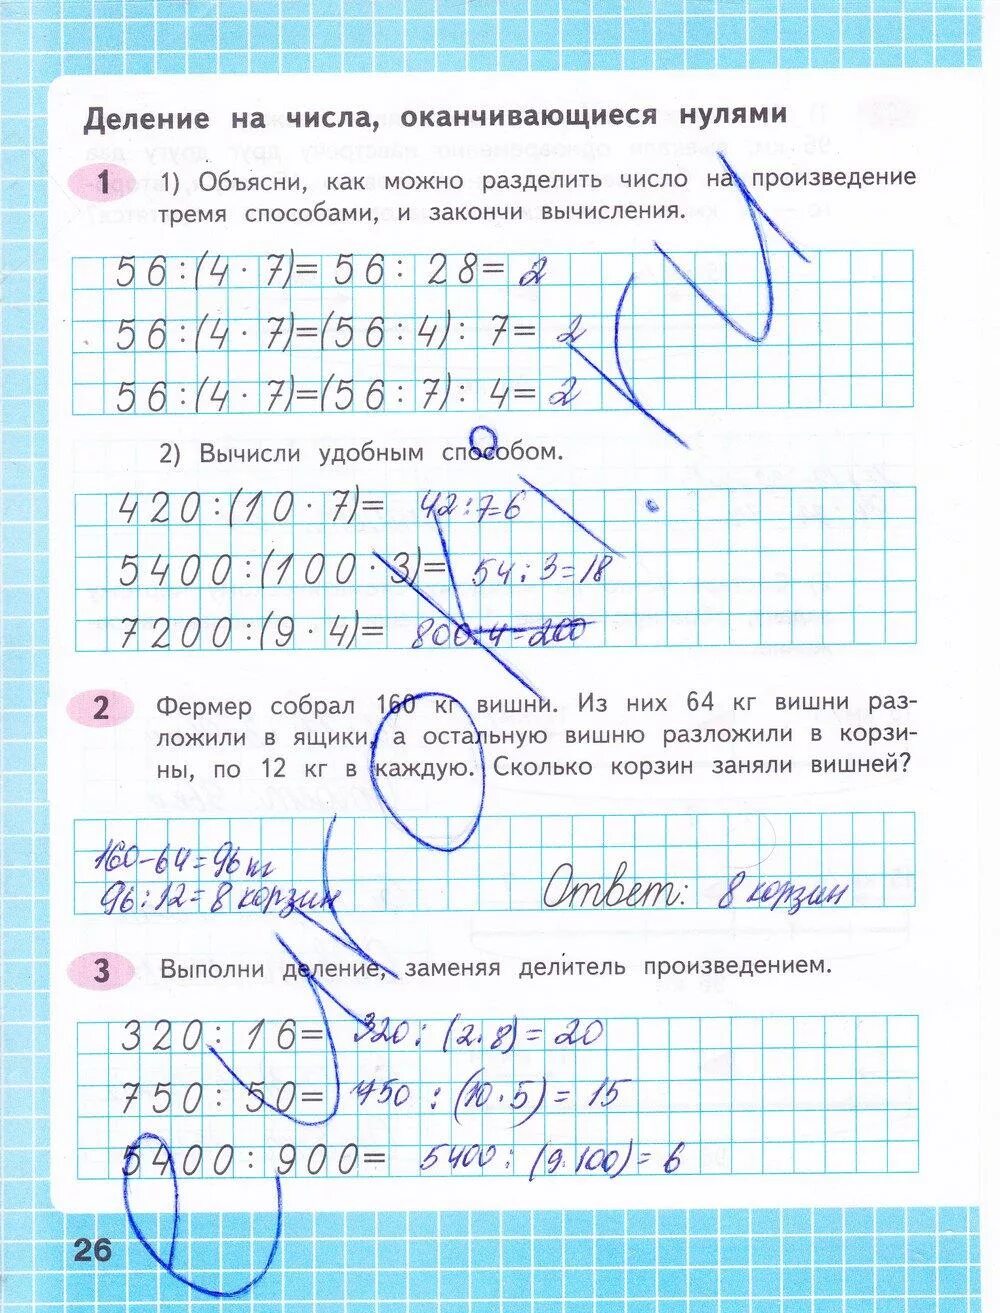 Деление на числа, оканчивающиеся нулями
1 1) Объясни, как можно разделить число на произведение
тремя способами, и закончи вычисления.
56:(4·7)=56:28=2
56:(4·7)=(56:4):7=2
56:(4·7)=(56:7):4=2
2) Вычисли удобным способом.
420:(10·7)= 42:7=6
5400:(100·3)= 54:3=18
7200:(9·4)= 800:4=200
2 Фермер собрал 160 кг вишни. Из них 64 кг вишни раз-
ложили в ящики, а остальную вишню разложили в корзи-
ны, по 12 кг в каждую. Сколько корзин заняли вишней?
160-64=96 кг
96:12=8 корзин Ответ: 8 корзин
3 Выполни деление, заменяя делитель произведением.
320:16= 320:(2·8)=20
750:50= 750:(10·5)=15
5400:900= 5400:(9·100)=6
26